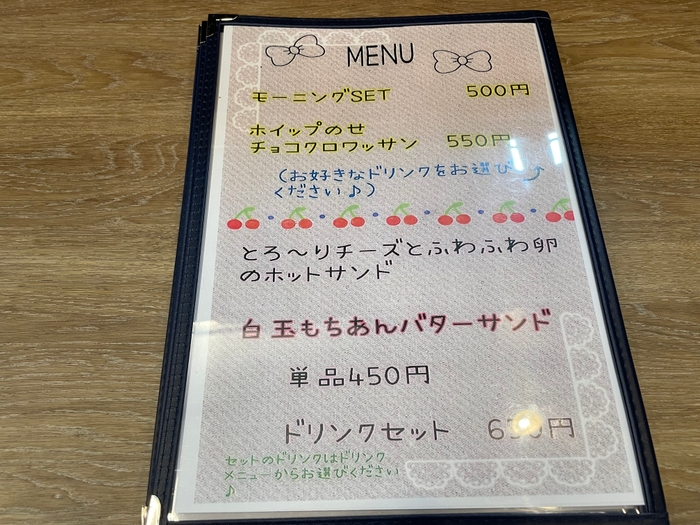 MENU
モーニングSET 500円
ホイップのせ
チョコクロワッサン 550円
(お好きなドリンクをお選び
ください♪)
とろ〜りチーズとふわふわ卵
のホットサンド
白玉もちあんバターサンド
単品450円
ドリンクセット
セットのドリンクはドリンク
メニューからお選びください
♪